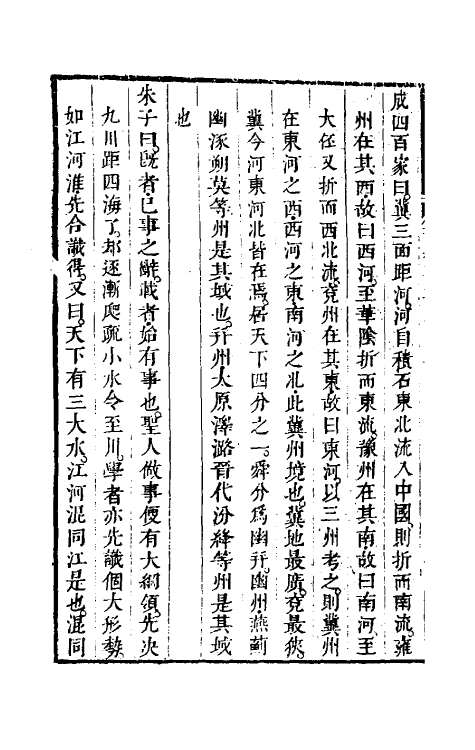 成四百家曰冀三面距河河自積石東北流入中國則折而南流雍
州在其西故曰西河至華陰折而東流豫州在其南故曰南河至
大伾又折而西北流兖州在其東故曰東河以三州考之則冀州
在東河之西西河之東南河之北此冀州境也冀地最廣兖最狹
冀今河東河北皆在焉居天下四分之一舜分爲幽并幽州燕薊
幽涿朔莫等州是其域也并州太原澤潞晉代汾絳等州是其域
也
朱子曰旣者已事之辭載者始有事也聖人做事便有大綱領先决
九川距四海了却逐漸爬疏小水令至川學者亦先識個大形勢
如江河淮先合識得又曰天下有三大水江河混同江是也混同